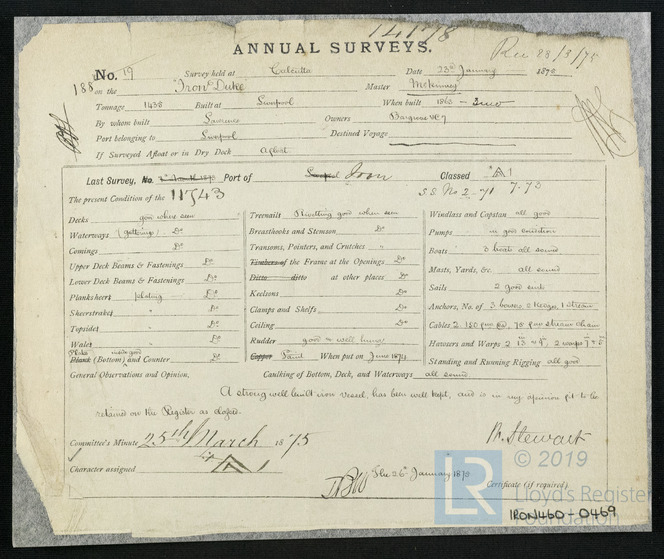 14178
ANNUAL SURVEYS.
Rec 23/3/75
No. 19 Survey held at Calcutta Date 23rd January 1875
188 on the "Iron Duke" Master McKenney
Tonnage 1438 Built at Liverpool When built 1863
By whom built Lawrence Owners
Port belonging to Liverpool Destined Voyage
If Surveyed Afloat or in Dry Dock Afloat
Last Survey, No. Port of Iron Classed A 1
S.S. No 2-71 7.73
The present Condition of the 11743
Decks good where seen
Waterways (gutterings) Do
Comings Do
Upper Deck Beams & Fastenings Do
Lower Deck Beams & Fastenings Do
Plansheers plating Do
Sheerstrakes " Do
Topsides " Do
Wales " Do
Plank (Bottom) and Counter Do
Treenails Rivetting good where seen
Breasthooks and Stemson Do
Transoms, Pointers, and Crutches "
Timbers of the Frame at the Openings Do
Ditto ditto at other places Do
Keelsons Do
Clamps and Shelfs Do
Ceiling Do
Rudder good & well hung
Copper Paint When put on June 1874
Windlass and Capstan all good
Pumps in good condition
Boats 3 boats all sound
Masts, Yards, &c. all sound
Sails 2 good suits
Anchors, No. of 3 bowers 2 Kedges 1 Stream
Cables 2. 150 75 stream chain
Hawsers and Warps 2 warps
Standing and Running Rigging all good
General Observations and Opinion, Caulking of Bottom, Deck, and Waterways all sound
A strong well built iron vessel, has been well kept, and is in my opinion fit to be
retained on the Register as classed.
Committee's Minute 25th March 1875
W. Stewart
Character assigned A 1
26th January 1875
Certificate (if required)
LR
© 2019
Lloyd's Register
Foundation
IRON460-0469